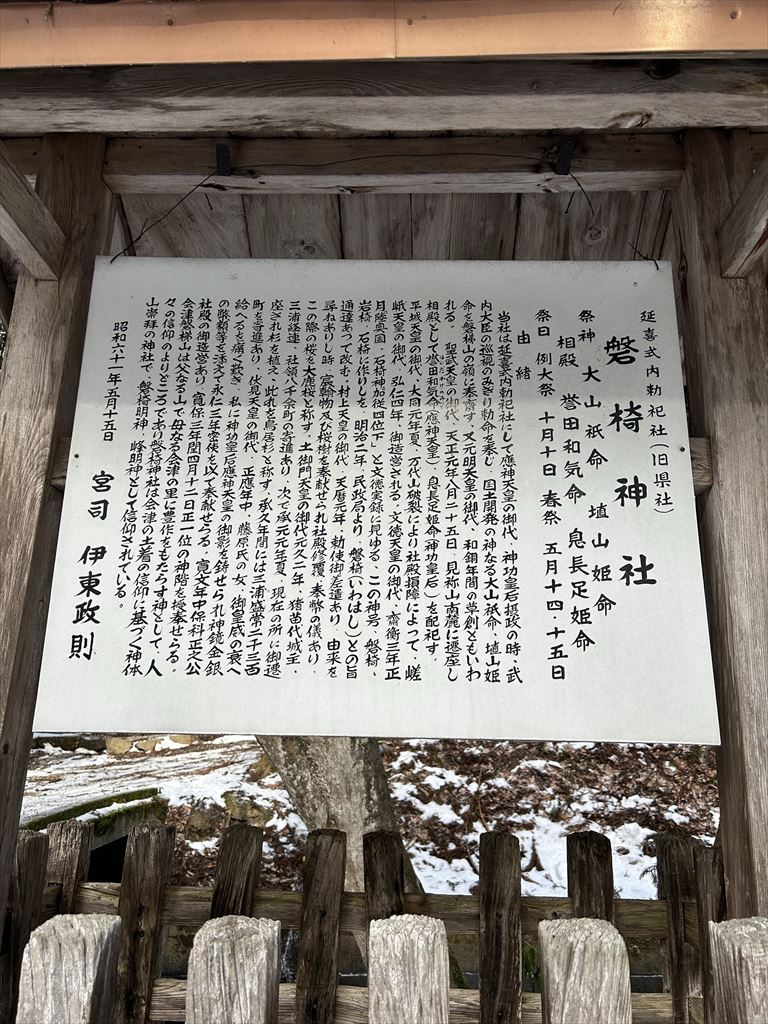 延喜式内勅祀社(旧県社)
磐椅神社
祭神 大山祇命 埴山姫命
相殿 誉田和気命 息長足姫命
祭日 例大祭 十月十日 春祭 五月十四・十五日
由緒
当社は延喜式内勅祀社にして應神天皇の御代、神功皇后摂政の時、武
内大臣の巡視のみぎり勅命を奉じ、国土開発の神なる大山祇命、埴山姫
命を磐梯山の嶺に奉斎す、又元明天皇の御代、和銅年間の草創ともいわ
れる。聖武天皇の御代、天正元年八月二十五日、見祢山南麓に遷座し
相殿として誉田和気命(應神天皇)、息長足姫命(神功皇后)を配祀す。
平城天皇の御代、大同元年夏、万代山破裂により社殿損障によって、嵯
峨天皇の御代、弘仁四年、御造営される。文徳天皇の御代、斎衡三年正
月陸奥国・石椅神加従四位下」と文徳実録に見ゆる、この神号、磐椅・
岩椅・石椅に作りしを、明治二年、民政局より、磐椅(いわはし)との旨
通達あって改む、村上天皇の御代、天暦元年、勅使御差遣あり、由来を
尋ねありし時、宸翰物及び桜樹を奉献せられ社殿修覆、奉幣の儀あり、
この際の桜を大鹿桜と称す、土御門天皇の御代元久二年、猪苗代城主、
三浦経連、社領八千余町の寄進あり、次で承元元年夏、現在の所に御遷
座され杉を植え、此れを鳥居杉と称す、承久年間には三浦盛常二千三百
町を寄進あり、伏見天皇の御代、正應年中、藤原氏の女、御皇威の衰へ
給へるを痛く歎き、私に神功皇后應神天皇の御影を鋳せられ神鏡金銀
の幣額等を添えて永仁三年密使を以て奉献せらる。寛文年中保科正之公
社殿の御造営あり、寛保三年閏四月十二日正一位の神階を授奉せらる。
会津磐梯山は父なる山で母なる会津の里に豊作をもたらす神として、人
々の信仰のよりどころであり磐椅神社は会津の土着の信仰に基づく神体
山崇拝の神社で、磐椅明神、峰明神として信仰されている。
昭和六十一年五月十五日
宮司 伊東政則